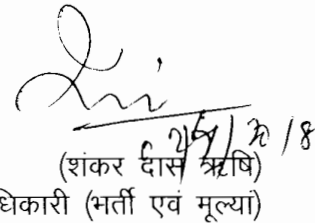 (शंकर दास ऋषि)
धिकारी (भर्ती एवं मूल्यां)